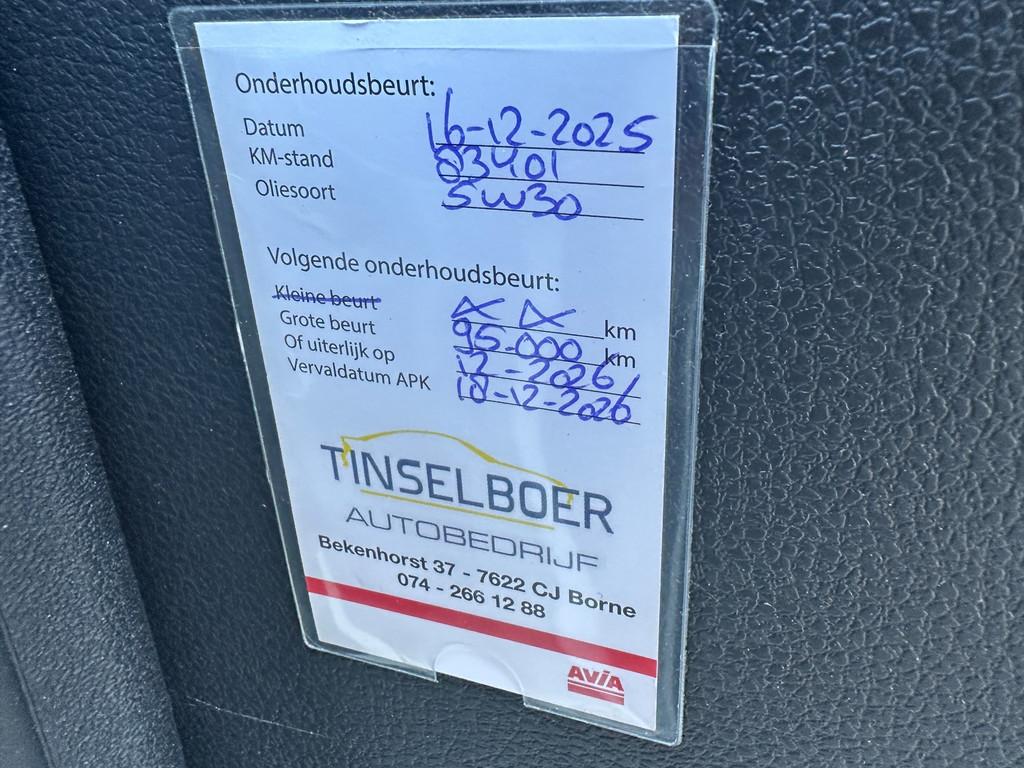 Onderhoudsbeurt:
Datum 16-12-2025
KM-stand 83401
Oliesoort 5W30
Volgende onderhoudsbeurt:
Kleine beurt km
Grote beurt 95.000 km
Of uiterlijk op 12-2026
Vervaldatum APK 18-12-2026
TINSELBOER
AUTOBEDRIJF
Bekenhorst 37 - 7622 CJ Borne
074 - 266 12 88
AVIA